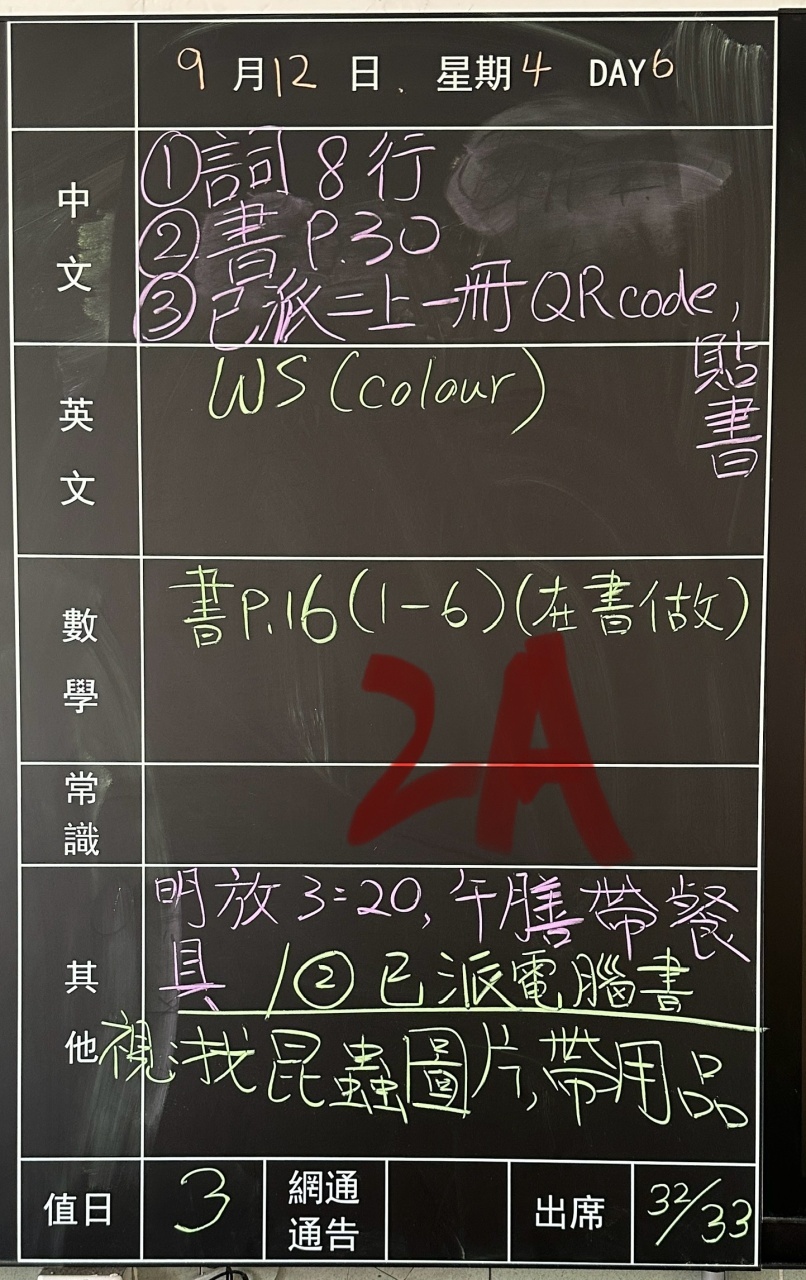 9月12日、星期4 DAY6
中文
①詞8行
②書P.30
③已派二上一冊QR code,
貼書
英文
WS(colour)
數學
書P.16(1-6)(在書做)
2A
常識
其他
明放3:20,午膳帶餐
具/②已派電腦書
視:找昆蟲圖片,帶用品
值日 3 網通通告 出席 32/33